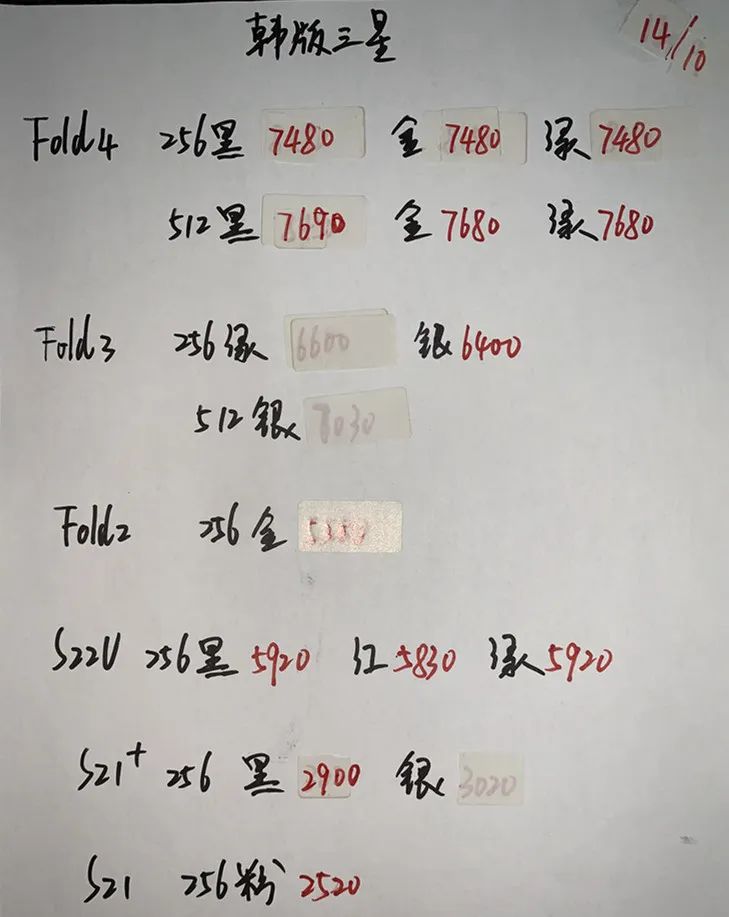 韩版三星 14/10
Fold4 256黑 7480 金 7480 绿 7480
512黑 7690 金 7680 绿 7680
Fold3 256绿 6600 银 6400
512银 7030
Fold2 256金
S22U 256黑 5920 红 5830 绿 5920
S21+ 256 黑 2900 银 3020
S21 256粉 2520